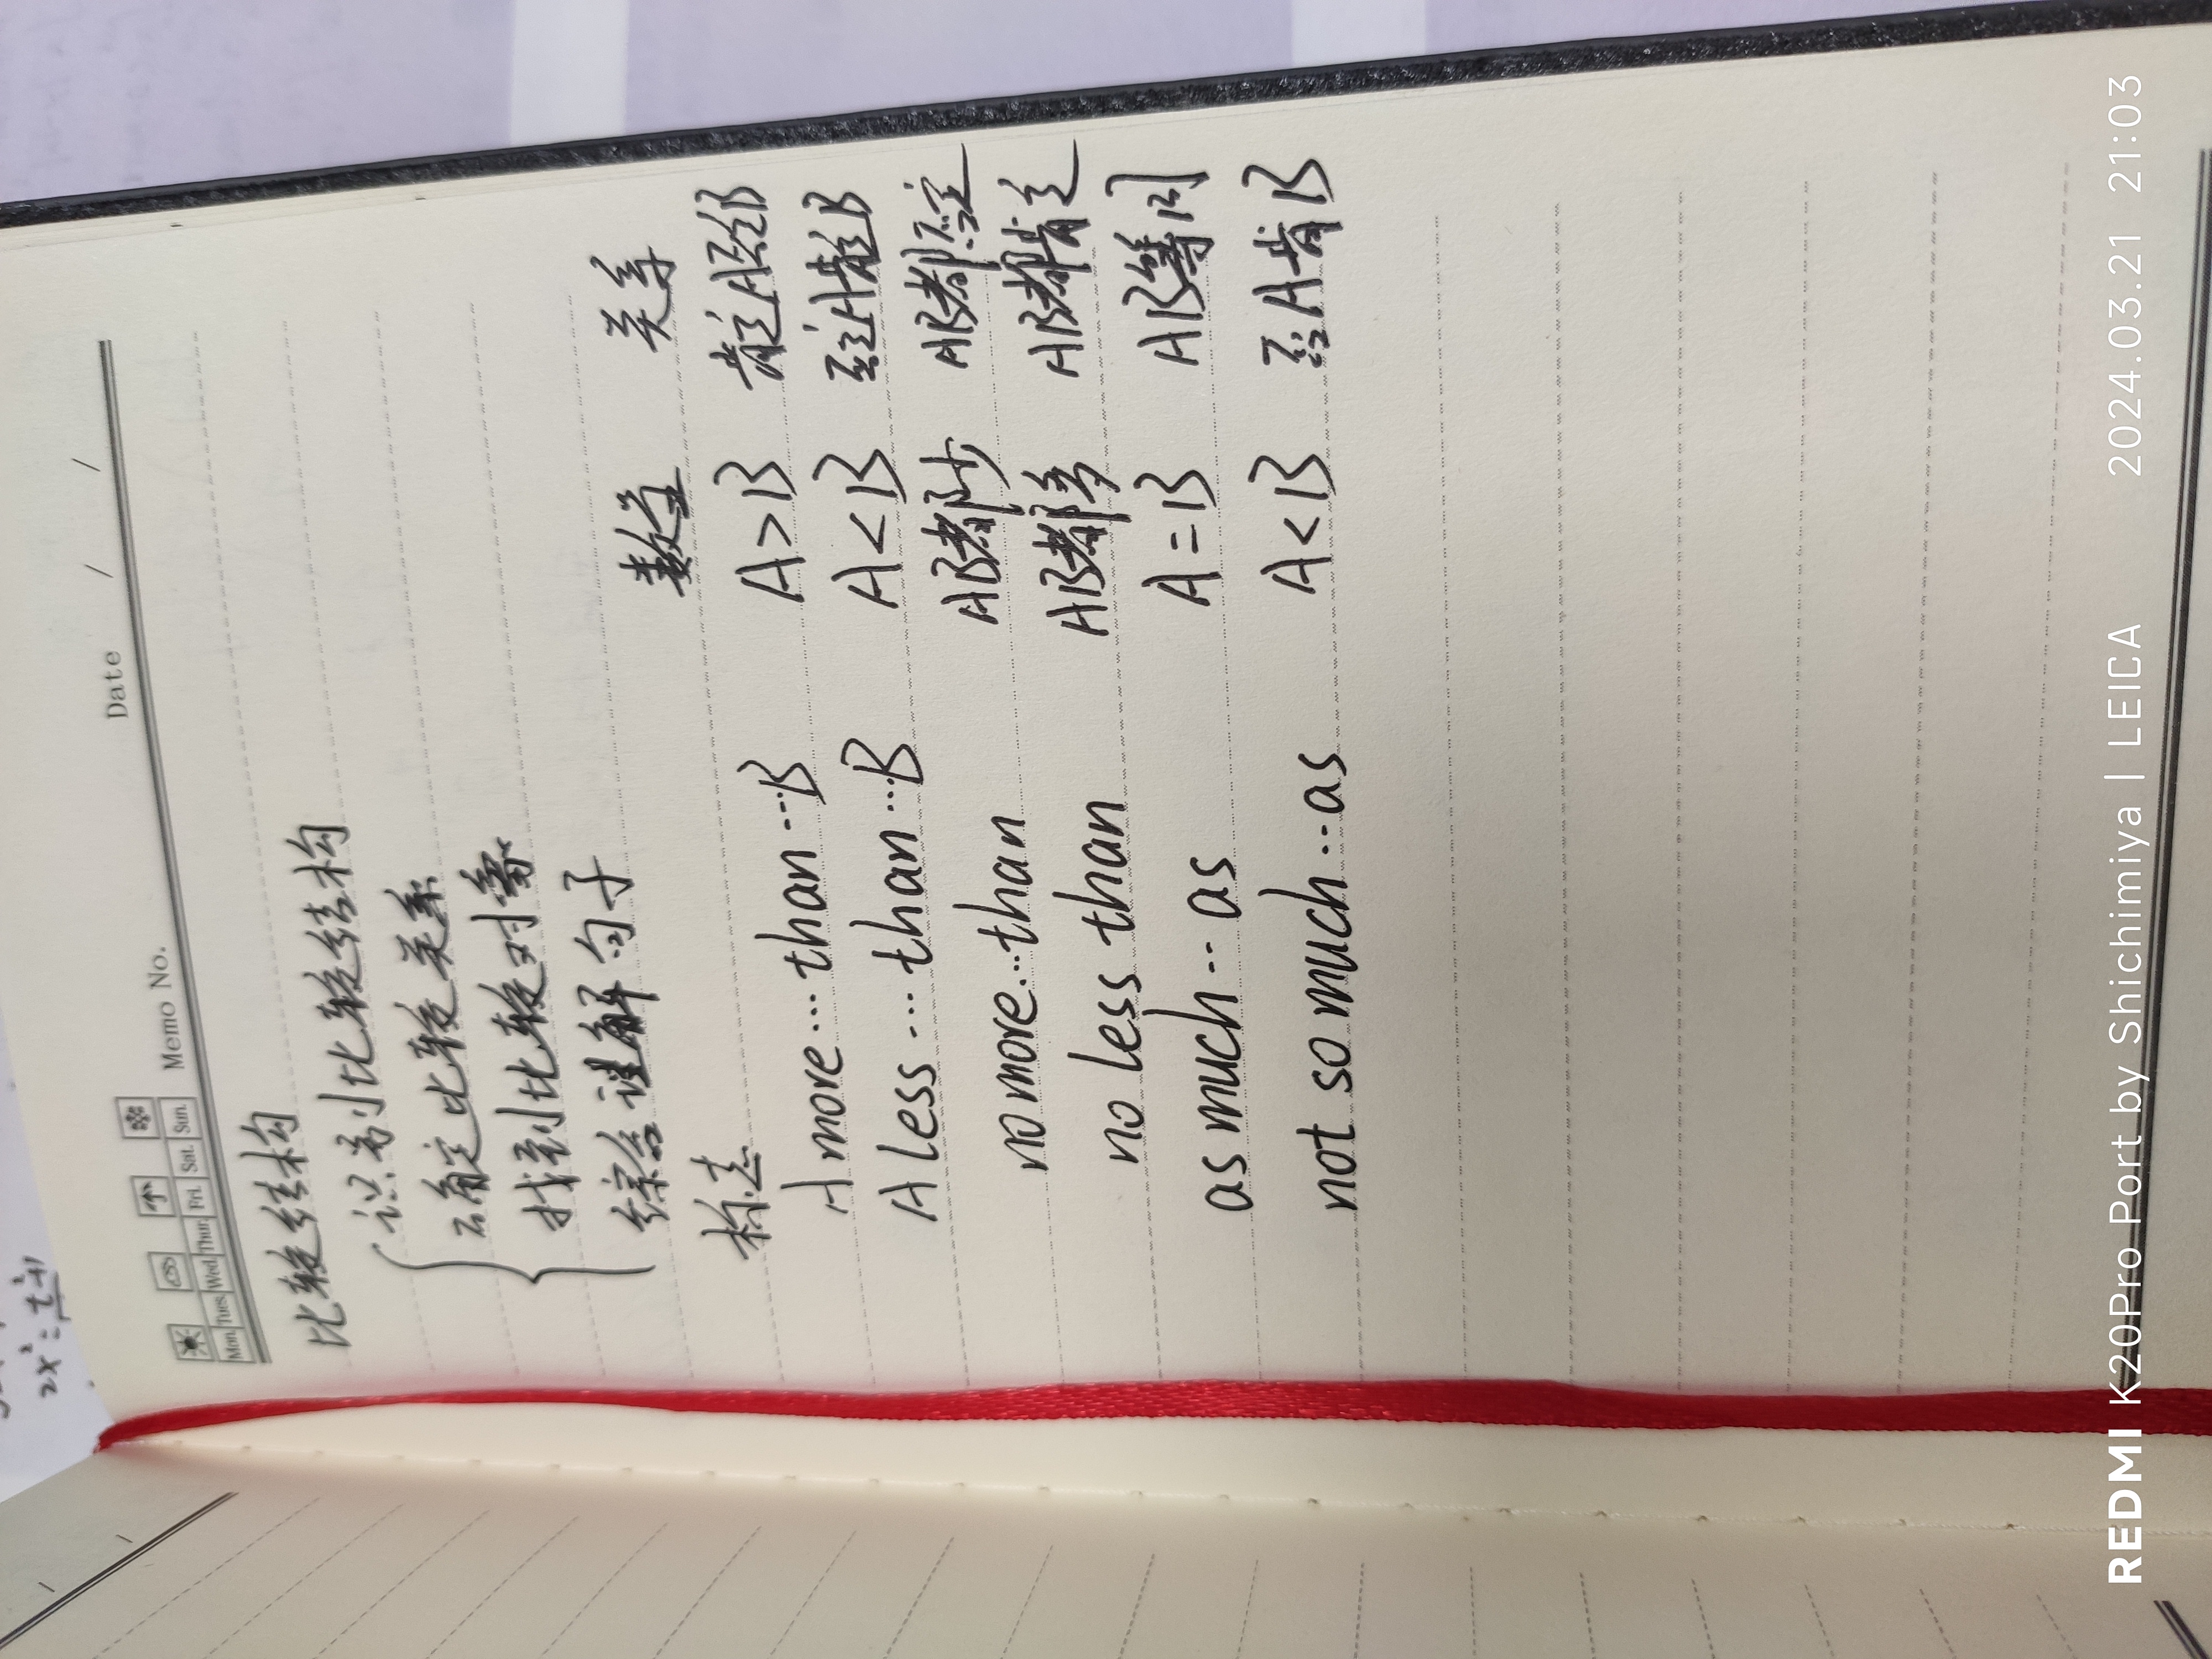 2x² = t²+1
Date / /
Memo No.
Mon. Tues. Wed. Thur. Fri. Sat. Sun.
比较结构
识别比较结构
确定比较关系
找到比较对象
综合理解句子
数量 关系
标志
A more…than…B A>B 肯定A否定B
A less…than…B A<B 否定A肯定B
no more…than AB都少 AB都否定
no less than AB都多 AB都肯定
as much…as A=B AB等同
not so much…as A<B 否A肯B
REDMI K20Pro Port by Shichimiya | LEICA 2024.03.21 21:03